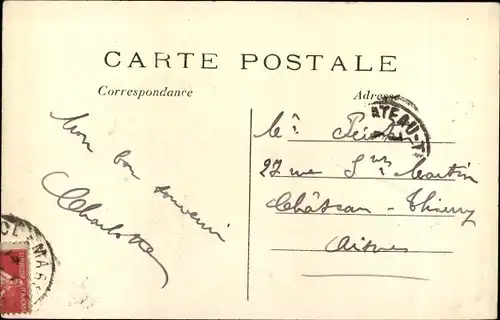 CARTE POSTALE
Correspondance
Adresse
Mon bon souvenir
Charlotte
27 rue St Martin
Château-Thierry
Aisne
TEAU-T